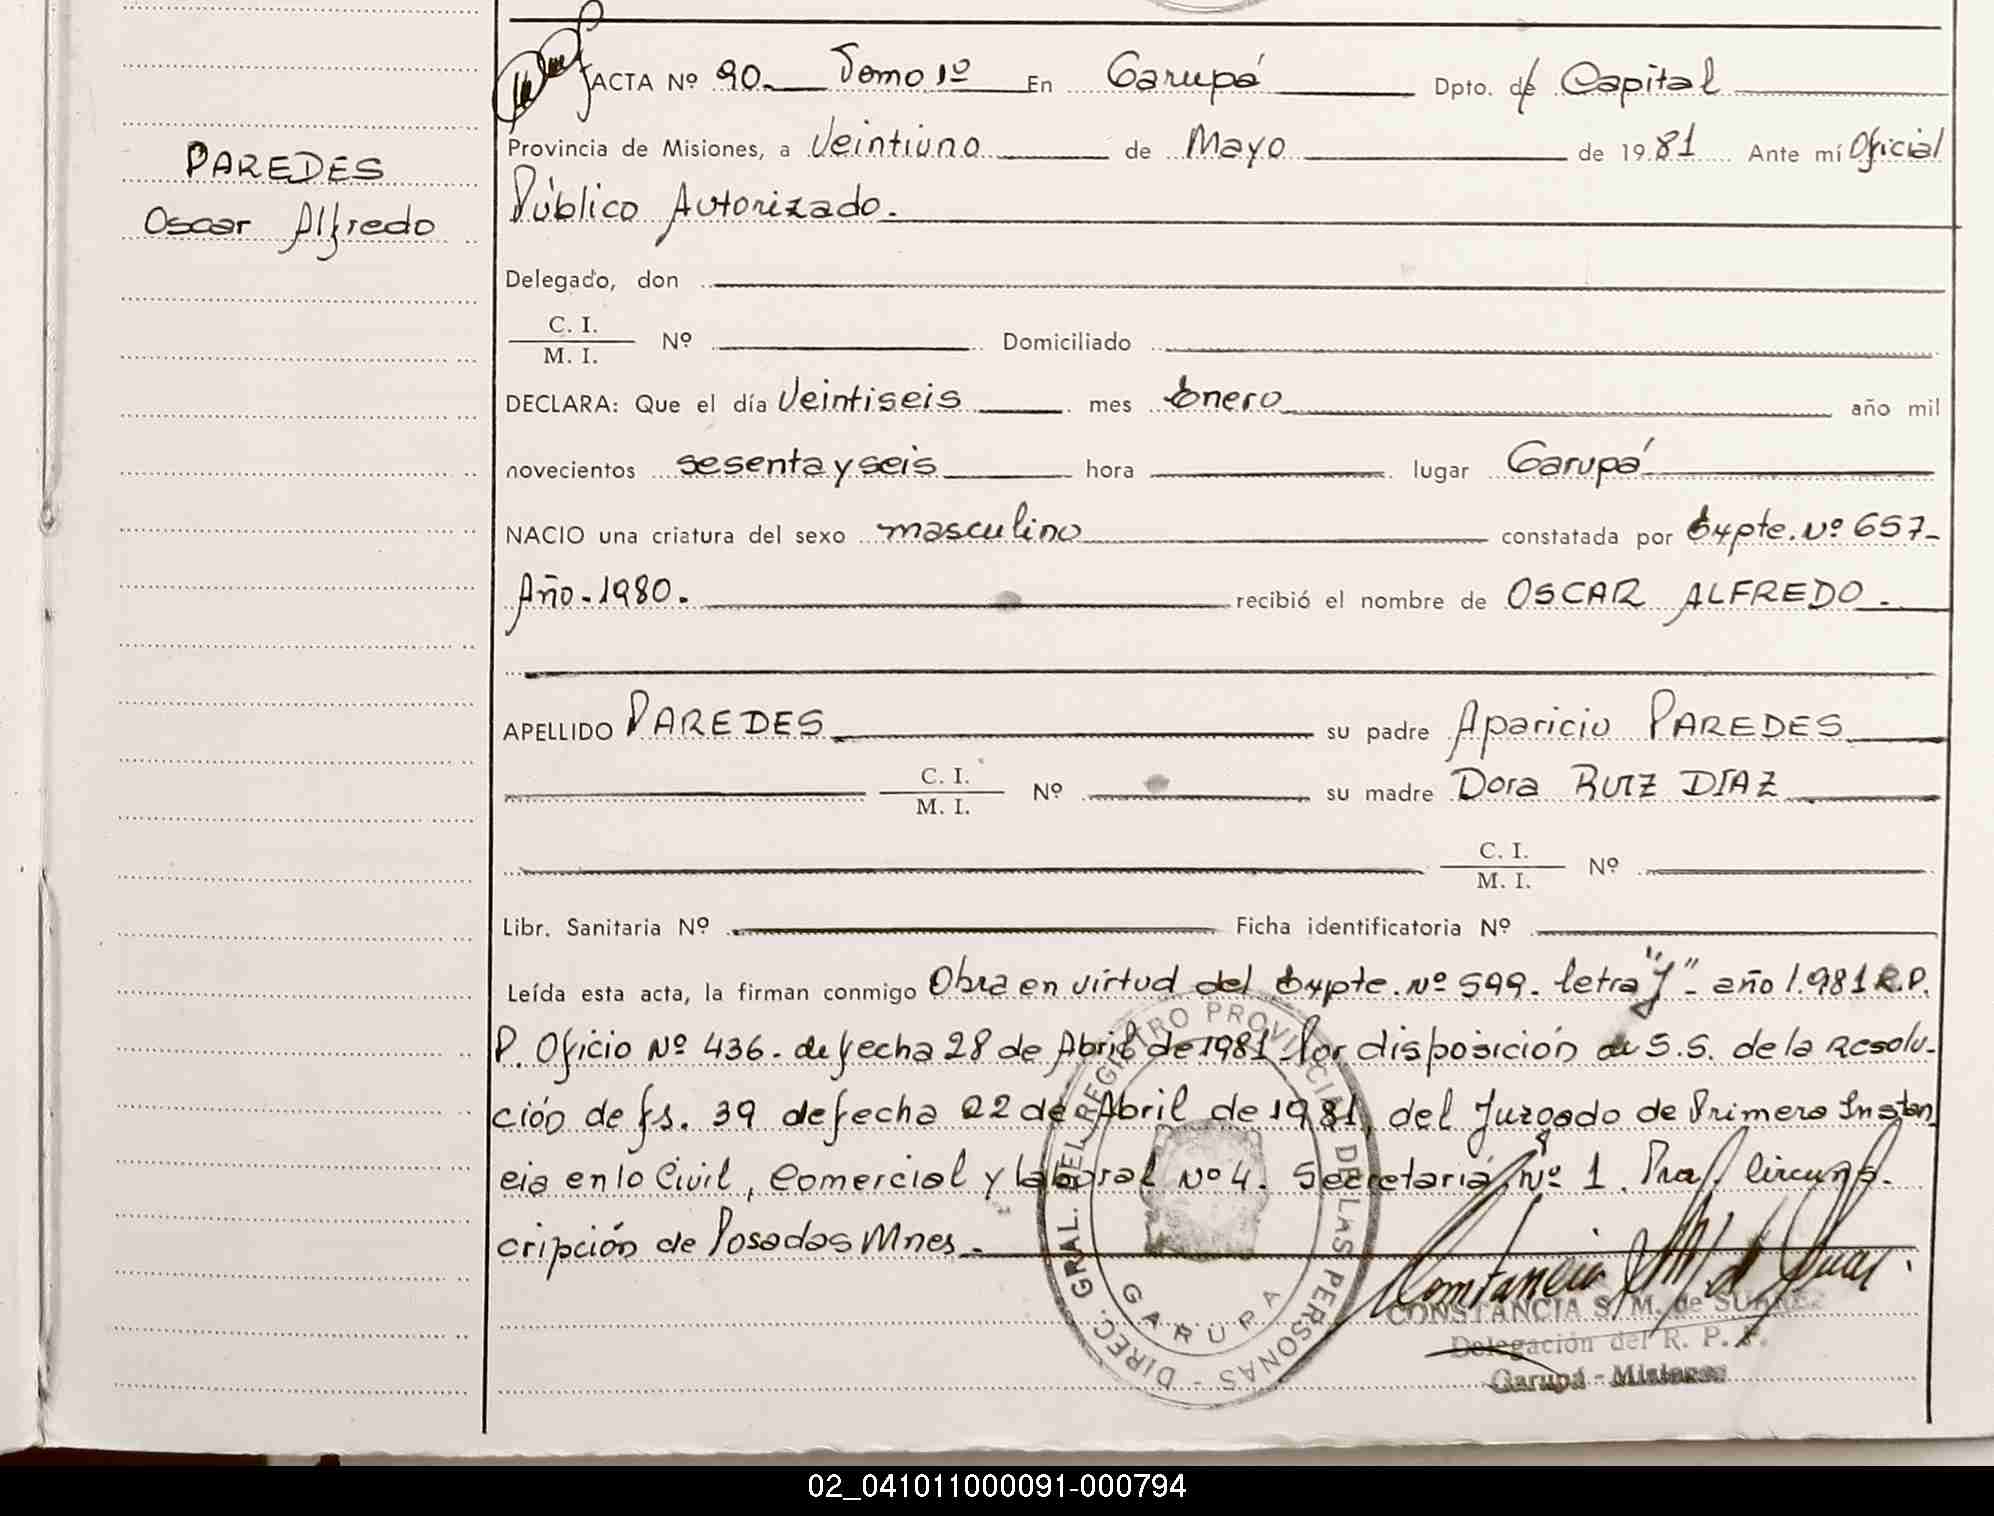 ACTA Nº 90. Tomo 1º En Garupá Dpto. de Capital
Provincia de Misiones, a Veintiuno de Mayo de 1981 Ante mí Oficial
PAREDES
Público Autorizado.
Oscar Alfredo
Delegado, don
C. I.
M. I.
Nº Domiciliado
DECLARA: Que el día Veintiseis mes Enero año mil
novecientos sesenta y seis hora lugar Garupá
NACIO una criatura del sexo masculino constatada por Expte. Nº 657-
Año-1980. recibió el nombre de OSCAR ALFREDO.
APELLIDO PAREDES su padre Aparicio PAREDES
C. I.
M. I.
Nº su madre Dora RUIZ DIAZ
C. I.
M. I.
Nº
Libr. Sanitaria Nº Ficha identificatoria Nº
Leída esta acta, la firman conmigo Obra en virtud del Expte. Nº 599. letra "J" - año 1.981 R.P.
P. Oficio Nº 436. de fecha 28 de Abril de 1981. Por disposición de S.S. de la Resolu-
ción de fs. 39 de fecha 22 de Abril de 1981, del Juzgado de Primera Instan
cia en lo Civil, Comercial y Laboral Nº 4. Secretaria Nº 1. Circuns-
cripción de Posadas Mnes.
DIREC. GRAL. DEL REGISTRO PROVINCIAL DE LAS PERSONAS -
GARUPA
CONSTANCIA S. M. de SUAREZ
Delegación del R. P. P.
Garupá - Misiones
02_041011000091-000794